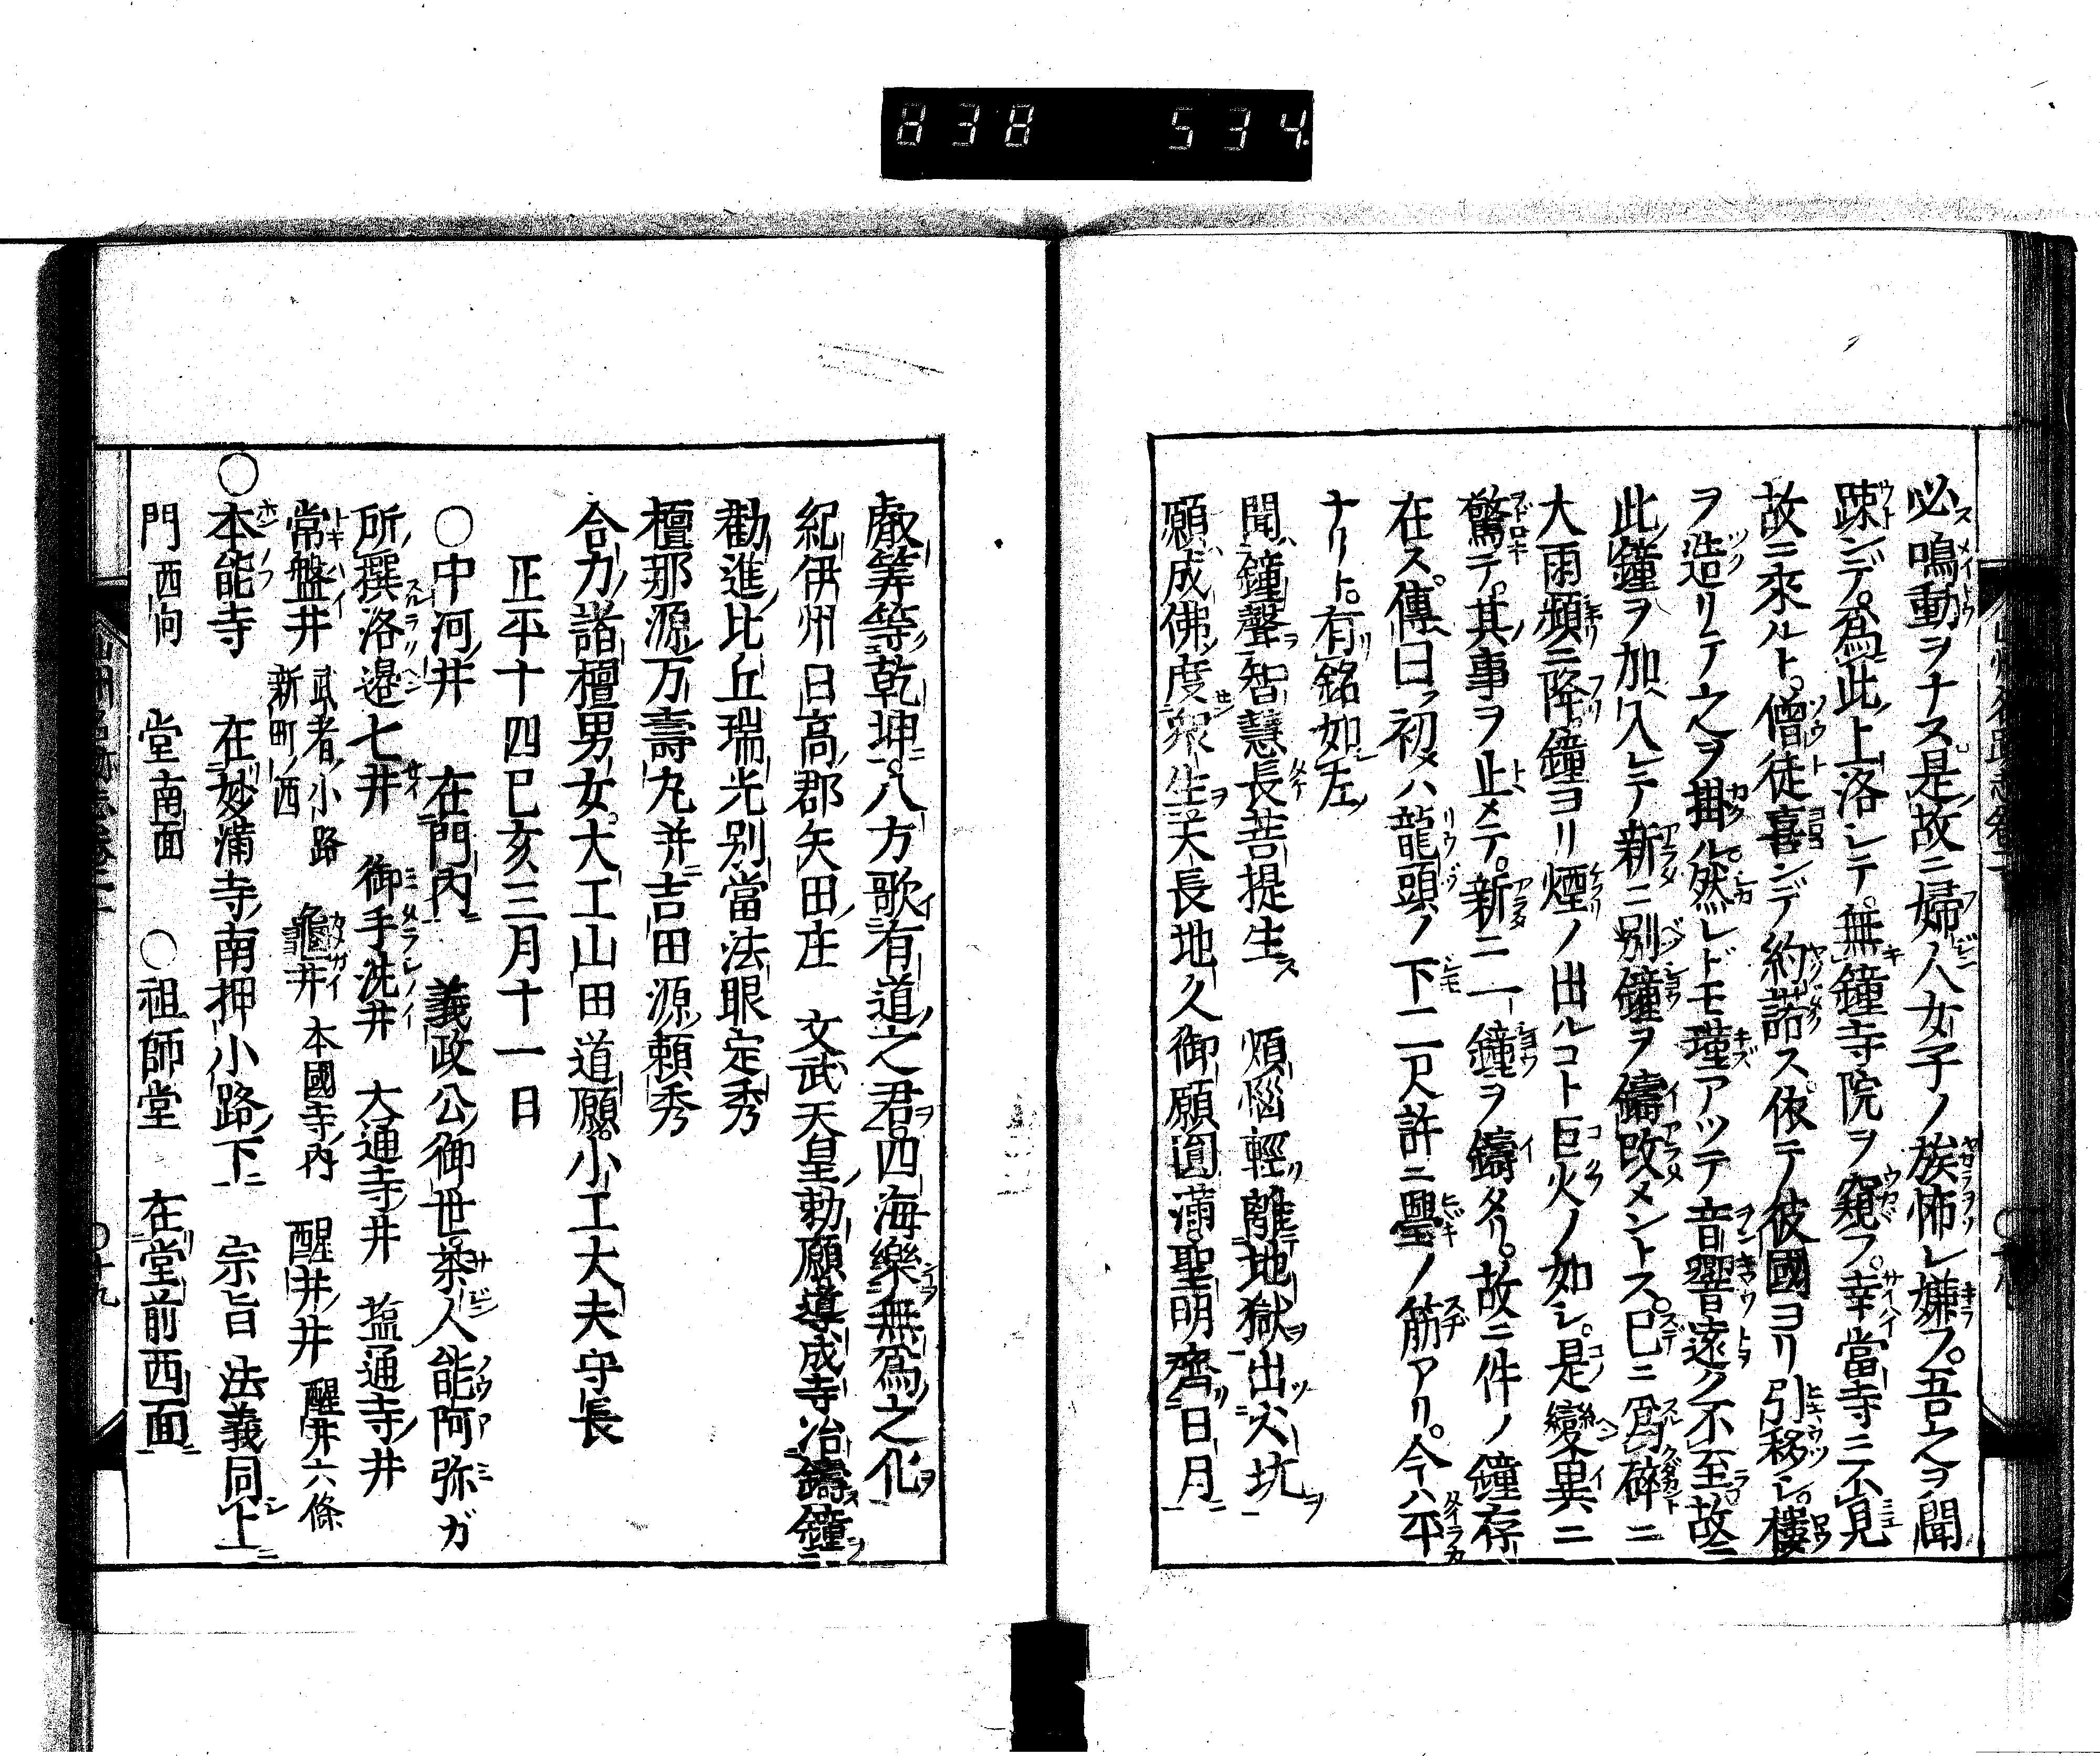 838 534.
必鳴動ヲナス是故ニ婦人女子ノ族怖レ嫌フ。吾之ヲ聞
疎ンデ。為此上洛シテ。無鐘寺院ヲ窺フ。幸當寺ニ不見
故ニ來ルト。僧徒喜ンデ約諾ス。依テ彼國ヨリ引移シ。樓
ヲ造リテ之ヲ掛ル。然レドモ瑾アツテ音響遠ク不至故ニ
此鐘ヲ加ヘ入レテ新ニ別鐘ヲ鑄改メントス。已ニ為碎ニ
大雨頻ニ降。鐘ヨリ煙ノ出ルコト巨火ノ如シ。是變異ニ
驚テ。其事ヲ止メテ。新ニ一鐘ヲ鑄タリ。故ニ件ノ鐘存
在ス。傳曰初メハ龍頭ノ下二尺許ニ璺ノ筋アリ。今ハ平
ナリト。有銘如左
聞鐘聲智慧長菩提生 煩惱輕離地獄出火坑
願成佛度衆生天長地久御願圓満聖明齊日月
叡筭等乾坤八方歌有道之君四海樂無為之化
紀伊州日高郡矢田庄 文武天皇勅願導成寺冶鑄鐘
勸進比丘瑞光別當法眼定秀
檀那源万壽丸并吉田源頼秀
合力諸檀男女大工山田道願小工大夫守長
正平十四巳亥三月十一日
○中河井 在門内 義政公御世茶人能阿弥ガ
所撰洛邉七井 御手洗井 大通寺井 塩通寺井
常盤井 武者小路新町ノ西 龜井 本國寺内 醒井井 醒井六條
○本能寺 在妙満寺南押小路下 宗旨法義同上
門 西向 堂 南面 ○祖師堂 在堂前西面